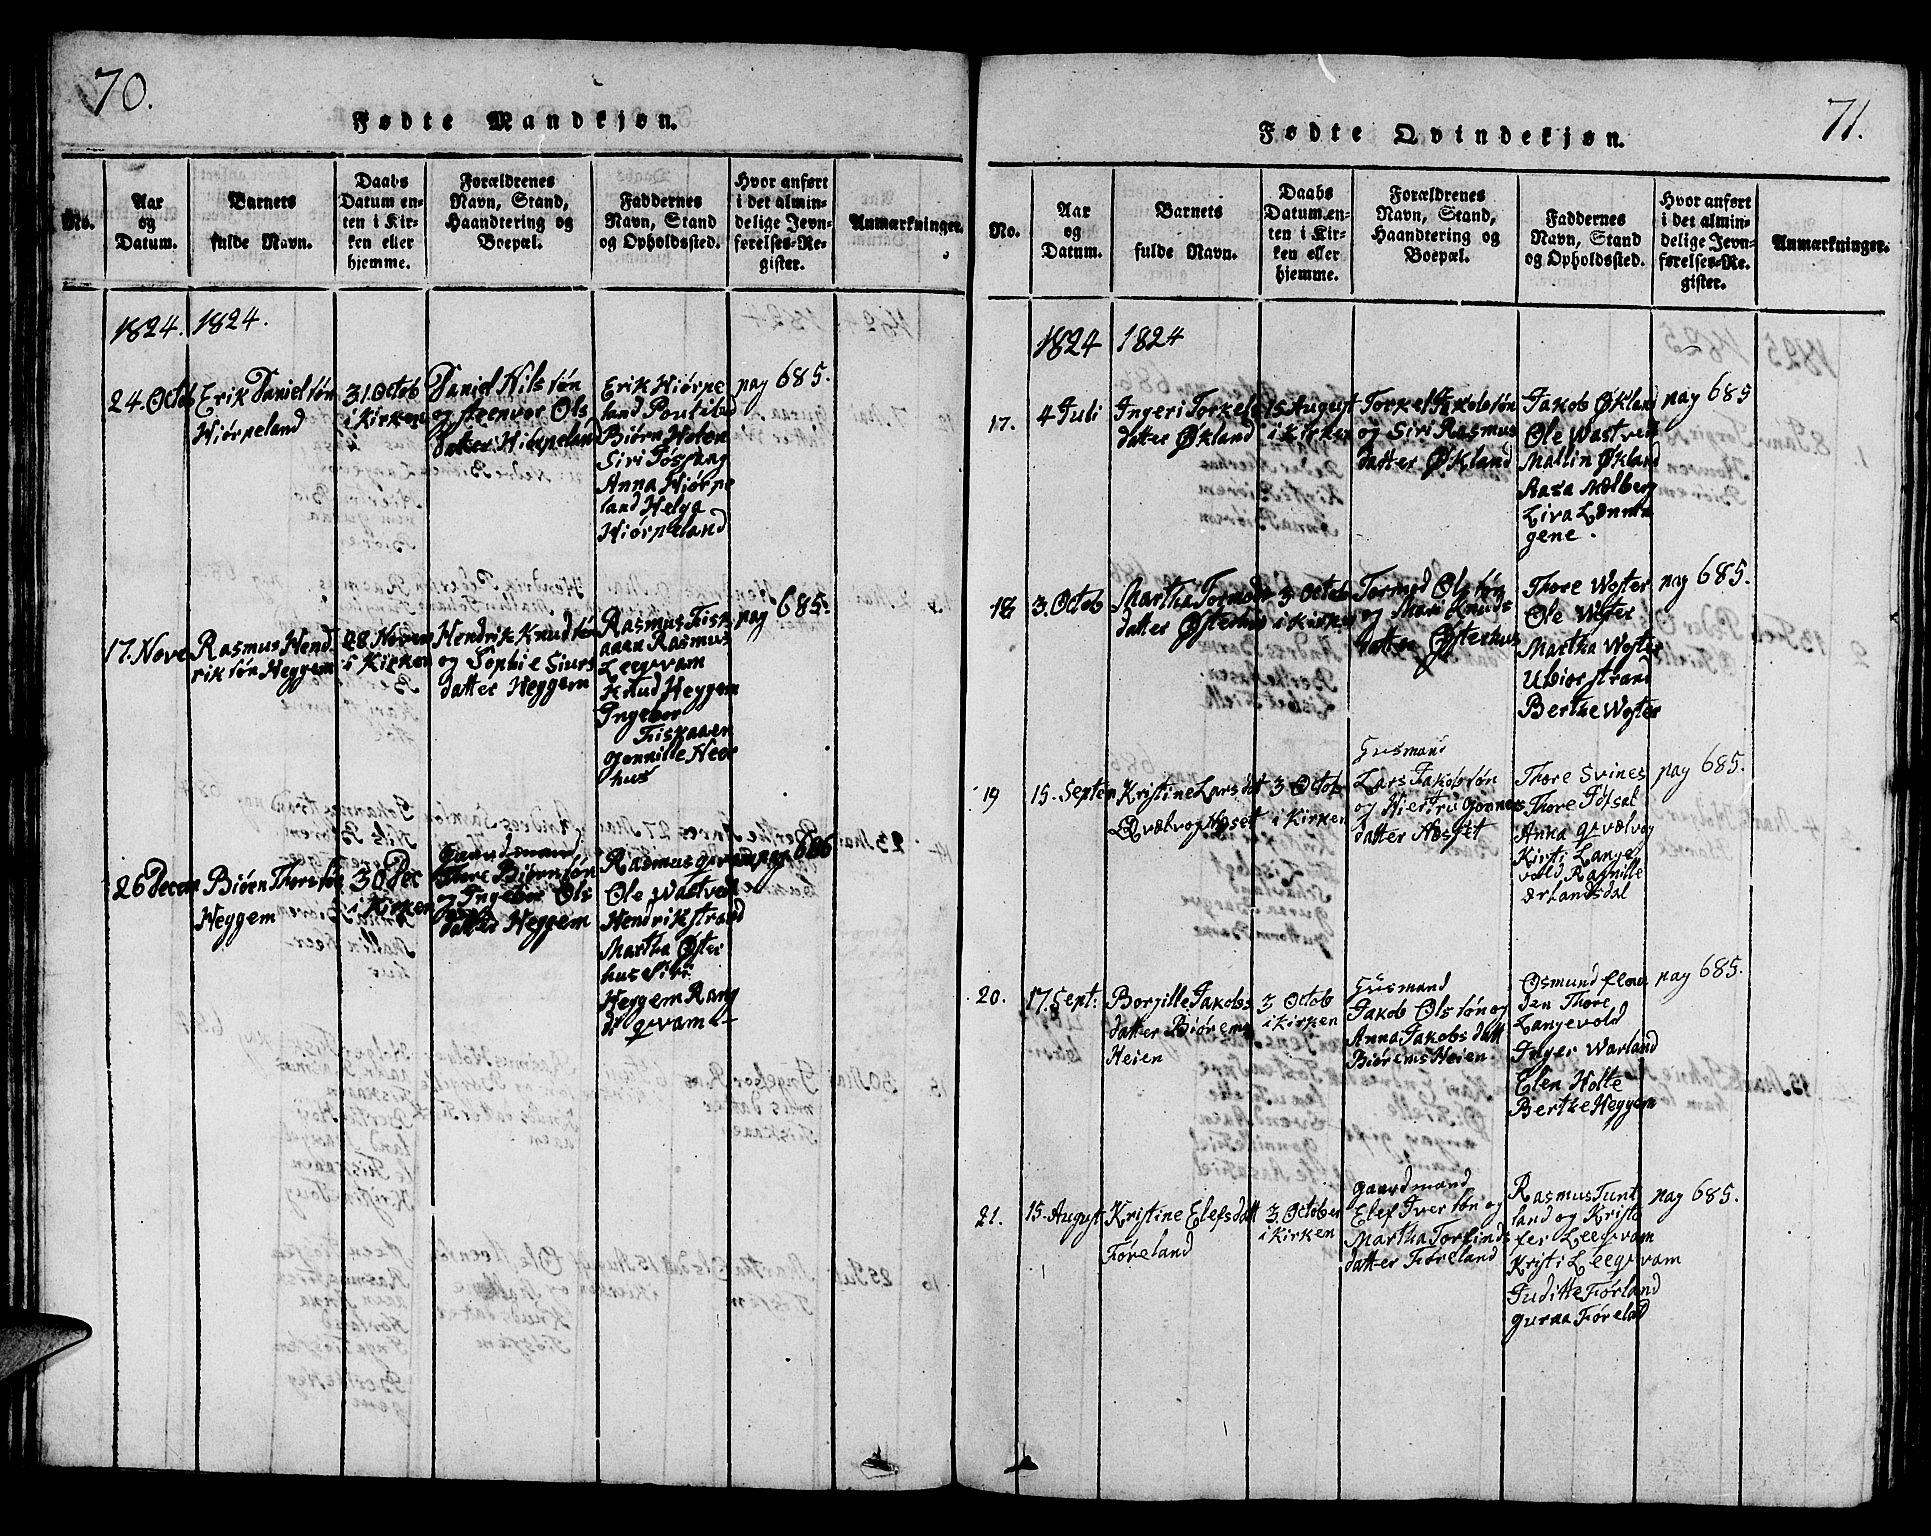 70.
Fødte Mandkjøn.
No.
Aar
og
Datum.
Barnets
fulde Navn.
Daabs
Datum en-
ten i Kir-
ken eller
hjemme.
Forældrenes
Navn, Stand,
Haandtering og
Boepæl.
Faddernes
Navn, Stand
og Opholdssted.
Hvor anført
i det almin-
delige Jevn-
førelses-Re-
gister.
Anmærkninger.
1824. 1824.
24. Octob
Erik Danielsøn
Hiørpeland
31. Octob
i Kirken
Daniel Nilssøn
og Steenvor Ols
datter Hiørpeland
Erik Hiørpe
land
Biørn Holen
Siri Fossang
Anna Hiørpe
land Helga
Hiørpeland
pag 685.
17. Nove
Rasmus Hend
riksøn Heggem
28 Novem
i Kirken
Hendrik Knudsøn
og Sophie Siurs
datter Heggem
Rasmus Fisk
aaen Rasmus
Leeqvam
Knud Heggem
Ingebor
Fiskaaen
Gonnille Neer
hus
pag 685.
26 Decem
Biøen Thoresøn
Heggem
30 Dec
i Kirken
Gaardmand
Thore Biørnsøn
og Ingebor Ols
datter Heggem
Rasmus Qvam
Ole Wastved
Hendrik Strand
Martha Øster
huse Siri
Heggem Rang
di Qvam
pag 686
71.
Fødte Qvindekjøn.
No.
Aar
og
Datum.
Barnets
fulde Navn.
Daabs
Datum en-
ten i Kir-
ken eller
hjemme.
Forældrenes
Navn, Stand,
Haandtering og
Boepæl.
Faddernes
Navn, Stand
og Opholdssted.
Hvor anført
i det almin-
delige Jevn-
førelses-Re-
gister.
Anmærkninger.
1824 1824
17.
4 Juli
Ingeri Torkels
datter Økland
15 August
i Kirken
Torkel Jakobsøn
og Siri Rasmus
datter Økland
Jakob Økland
Ole Wastved
Mallin Økland
Aasa Mælberg
Liva Lønnin
gene.
pag 685
18
3. Octob
Martha Tormods
datter Østerhus
3 Octob
i Kirken
Tormod Olssøn
og Mari Knuds
datter Østerhus
Thore Woster
Ole Woster
Martha Woster
Ubiør Strand
Berthe Woster
pag 685.
19
15. Septem
Kristine Larsdat
Qvælvog Næset
3 Octob
i Kirken
Husmand
Lars Jakobsøn
og Hiertru Gonners
datter Næset
Thore Svines
Thore Fossal
Anna Qvælvog
Kirsti Lange
vold Ragnille
Ærlandsdal
pag 685.
20.
17. Sept.
Borgille Jakobs
datter Biørems
Heien
3 Octob
i Kirken
Husmand
Jakob Olssøn og
Anna Jakobsdatt
Biørems Heien
Osmund
den Thore
Langevold
Inger Warland
Elen Holte
Berthe Heggem
pag 685.
21.
15. August
Kristine Elefsdatt
Føreland
3. October
i Kirken
Gaardmand
Elef Iversøn og
Martha Torfinds
datter Føreland
Rasmus Tunt
land og Kristo
fer Leeqvam
Kristi Leeqvam
Juditte Førland
Guraa Førelad
pag 685.